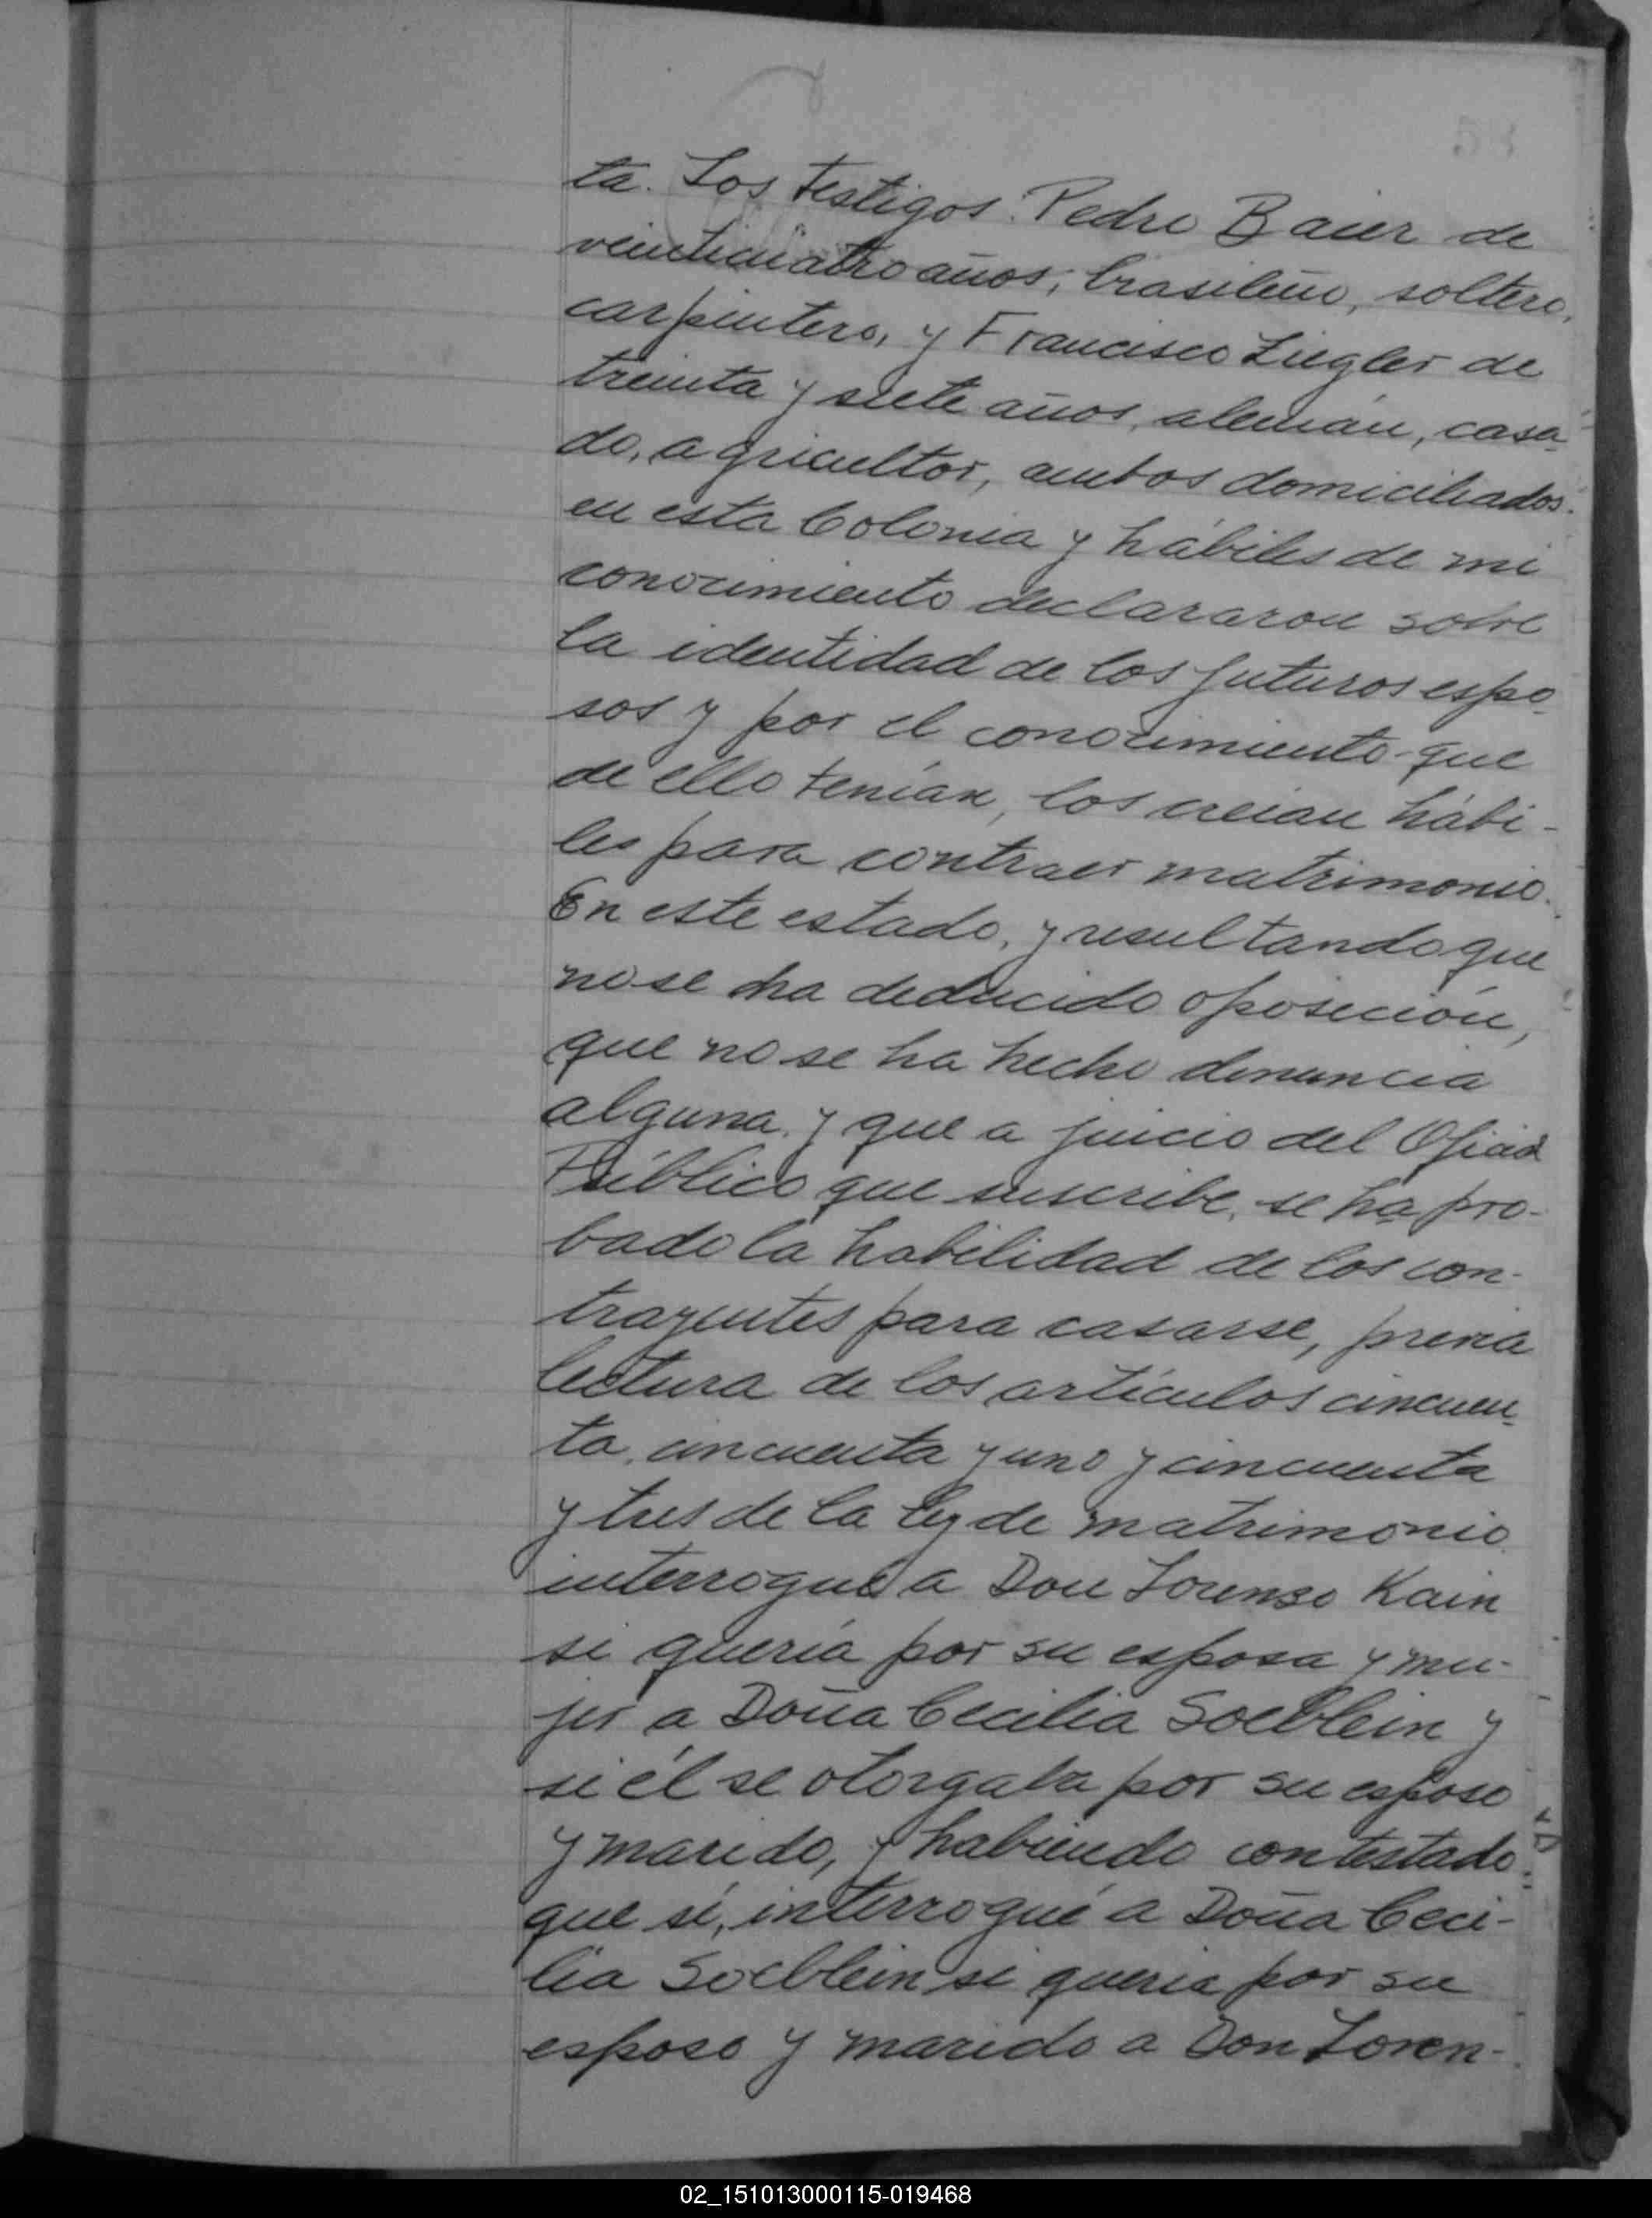 ta. Los testigos: Pedro Baier de
veinticuatro años, brasileño, soltero,
carpintero, y Francisco Ziegler de
treinta y siete años, alemán, casa-
do, agricultor, ambos domiciliados
en esta Colonia y hábiles de mi
conocimiento declararon sobre
la identidad de los futuros espo-
sos y por el conocimiento que
de ello tenían, los creían hábi-
les para contraer matrimonio.
En este estado, y resultando que
no se ha deducido oposición,
que no se ha hecho denuncia
alguna, y que a juicio del Oficial
Público que suscribe, se ha pro-
bado la habilidad de los con-
trayentes para casarse, previa
lectura de los artículos cincuen-
ta, cincuenta y uno y cincuenta
y tres de la ley de matrimonio
interrogué a Don Lorenzo Kain
si quería por su esposa y mu-
jer a Doña Cecilia Soeblein y
si él se otorgaba por su esposo
y marido, y habiendo contestado
que sí, interrogué a Doña Ceci-
lia Soeblein si quería por su
esposo y marido a Don Loren-
02_151013000115-019468